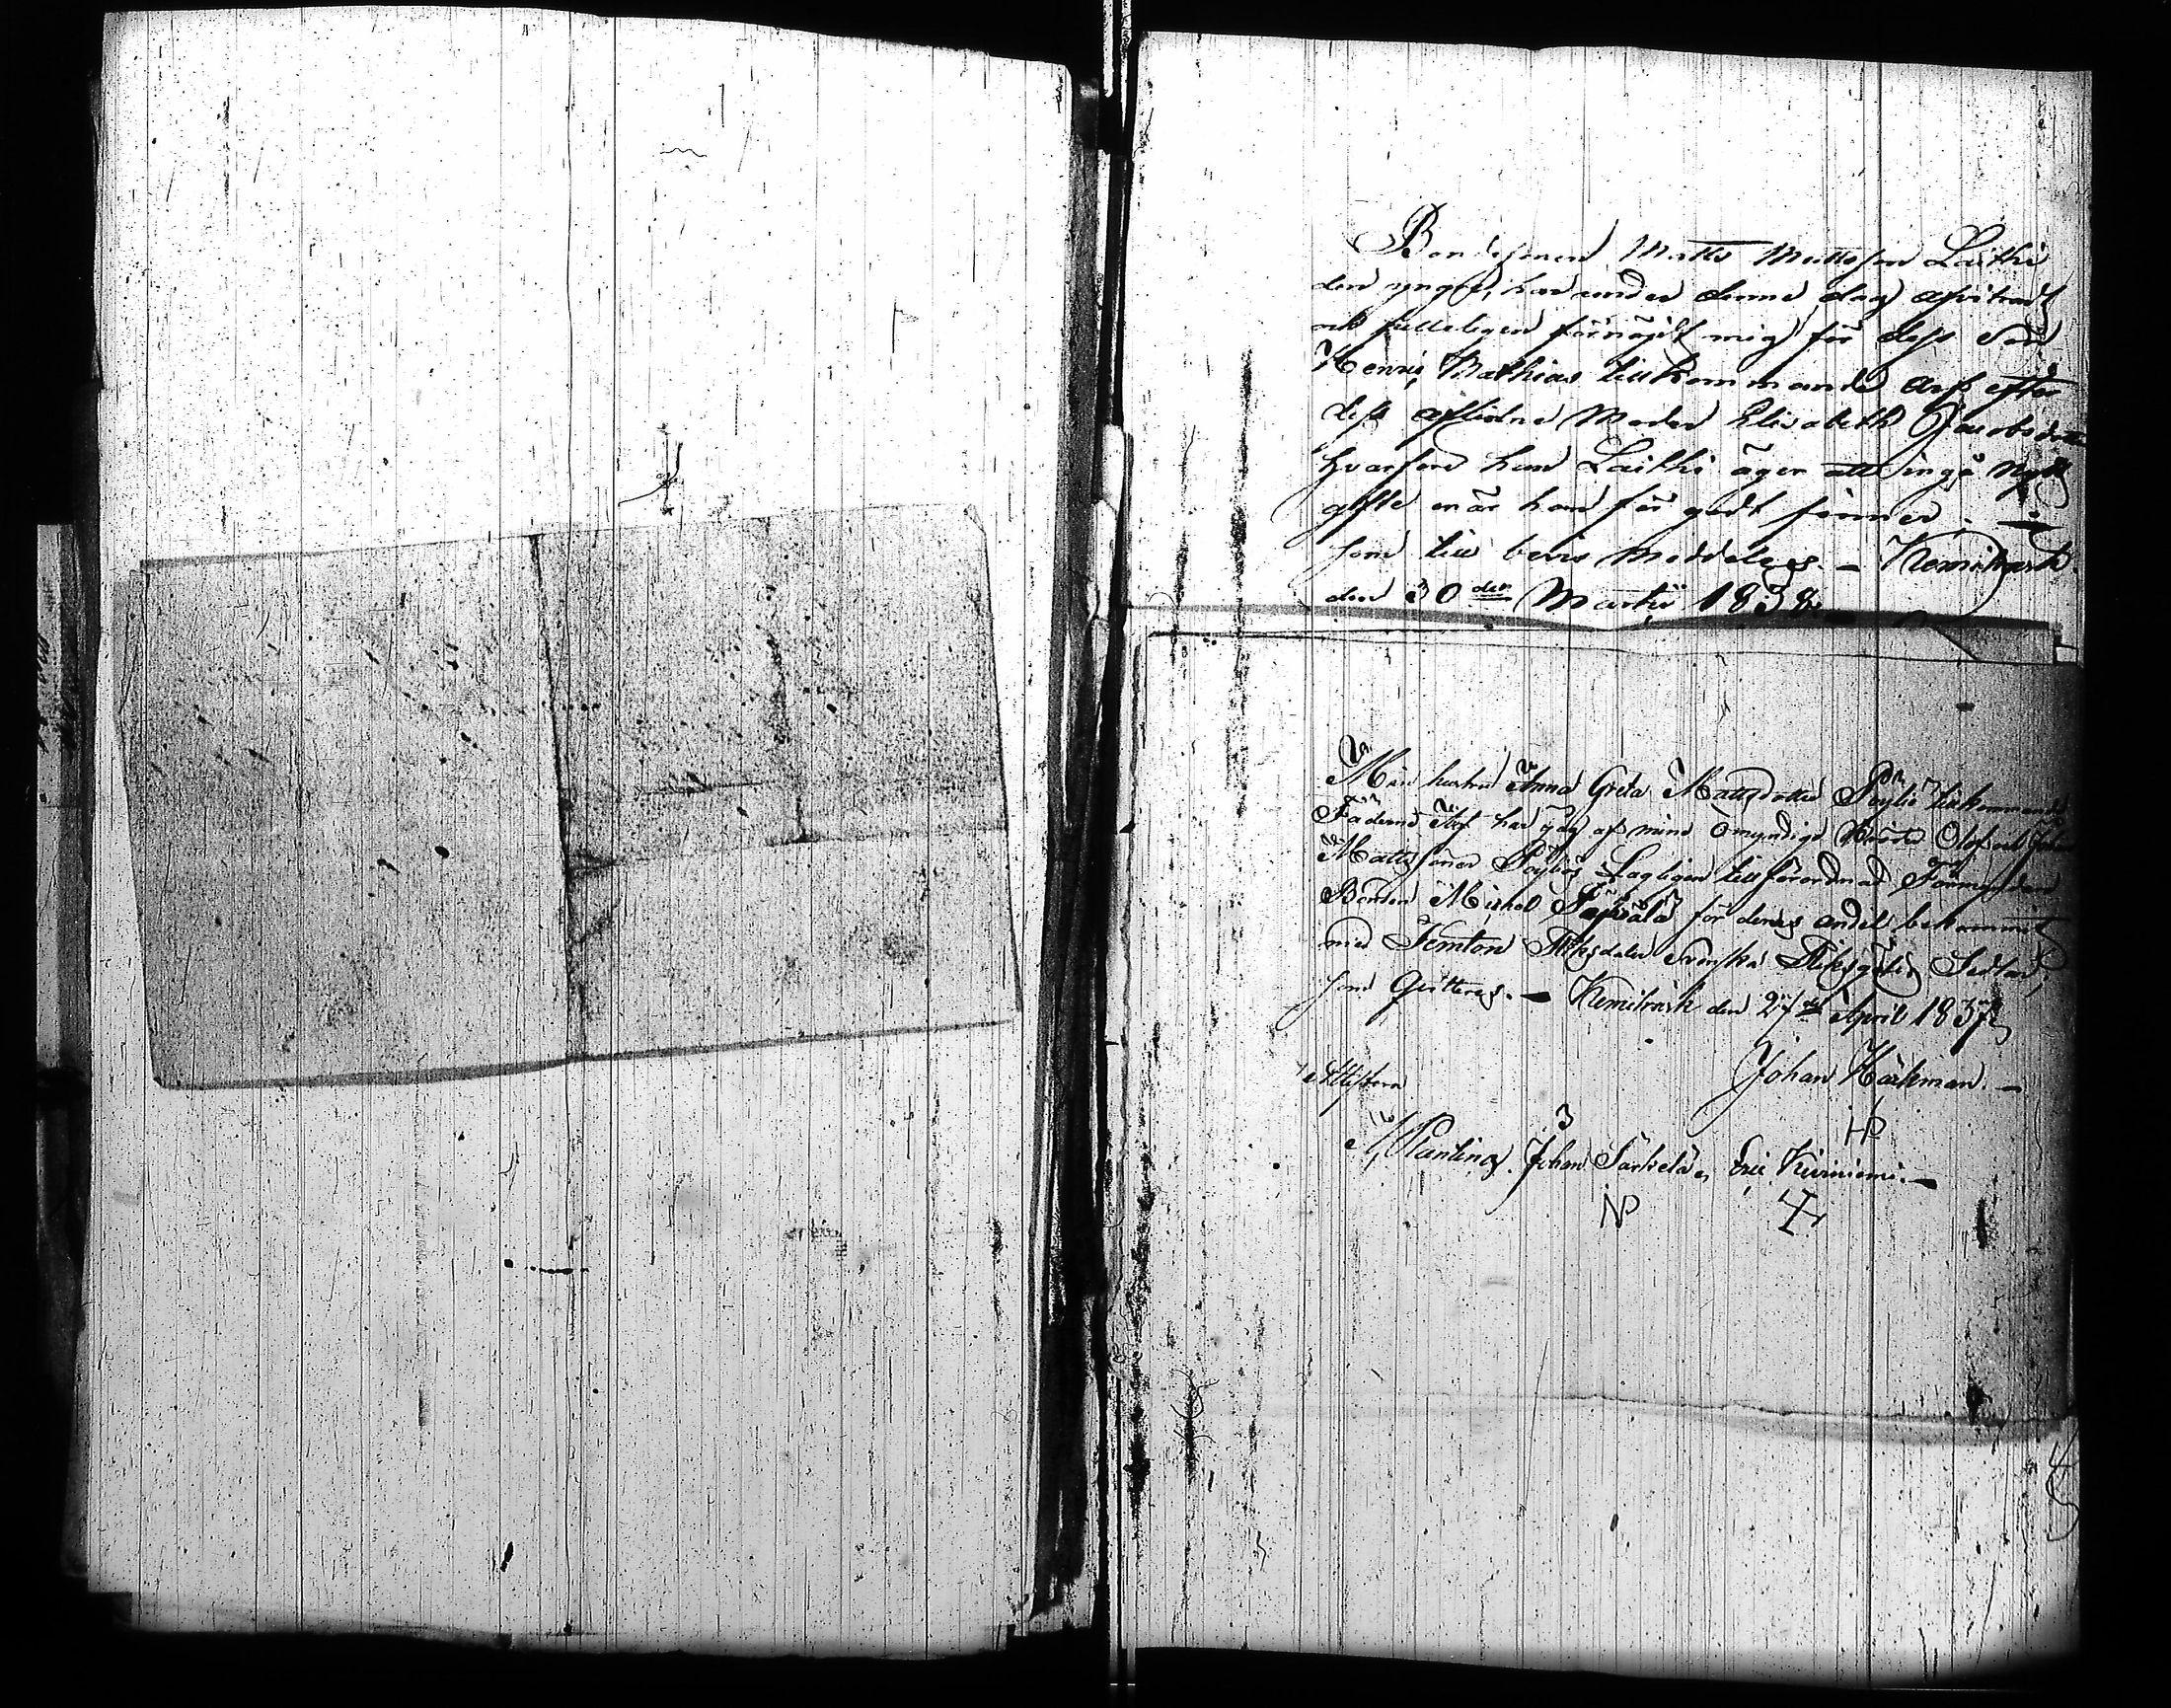 Bondesonen Matts Mattsson Laithi
den yngre, har under denne dag afvittradt
och fulleligen förnögdt mig för dess Son
Henric Mathias tillkommande arf efter
dess aflidne Moder Elisabeth Jacobsdotter
hvarföre han Laithi äger att ingå nytt
gifte när han för godt finner. —
som till bevis meddeles. — Kemiträsk
den 30 den Martii 1838.
Min hustru Anna Greta Mattsdotter Pöyliö tillkommande
Fäderne Arf har i dag af mine omyndige Bröder Olof och Johan
Mattssöner Pöyliös Lagligen tillförordnad Förmyndare
Bonden Michel Särkälä för deras andel bekommit
med Femton Riksdaler Svenska Riksgälds Sedlar,
som Qvitteras. — Kemiträsk den 27de April 1837
Johan Kärkman. —
Attestera
HP
M. Planting. Johan Särkelä, Eric Kurniemi. —